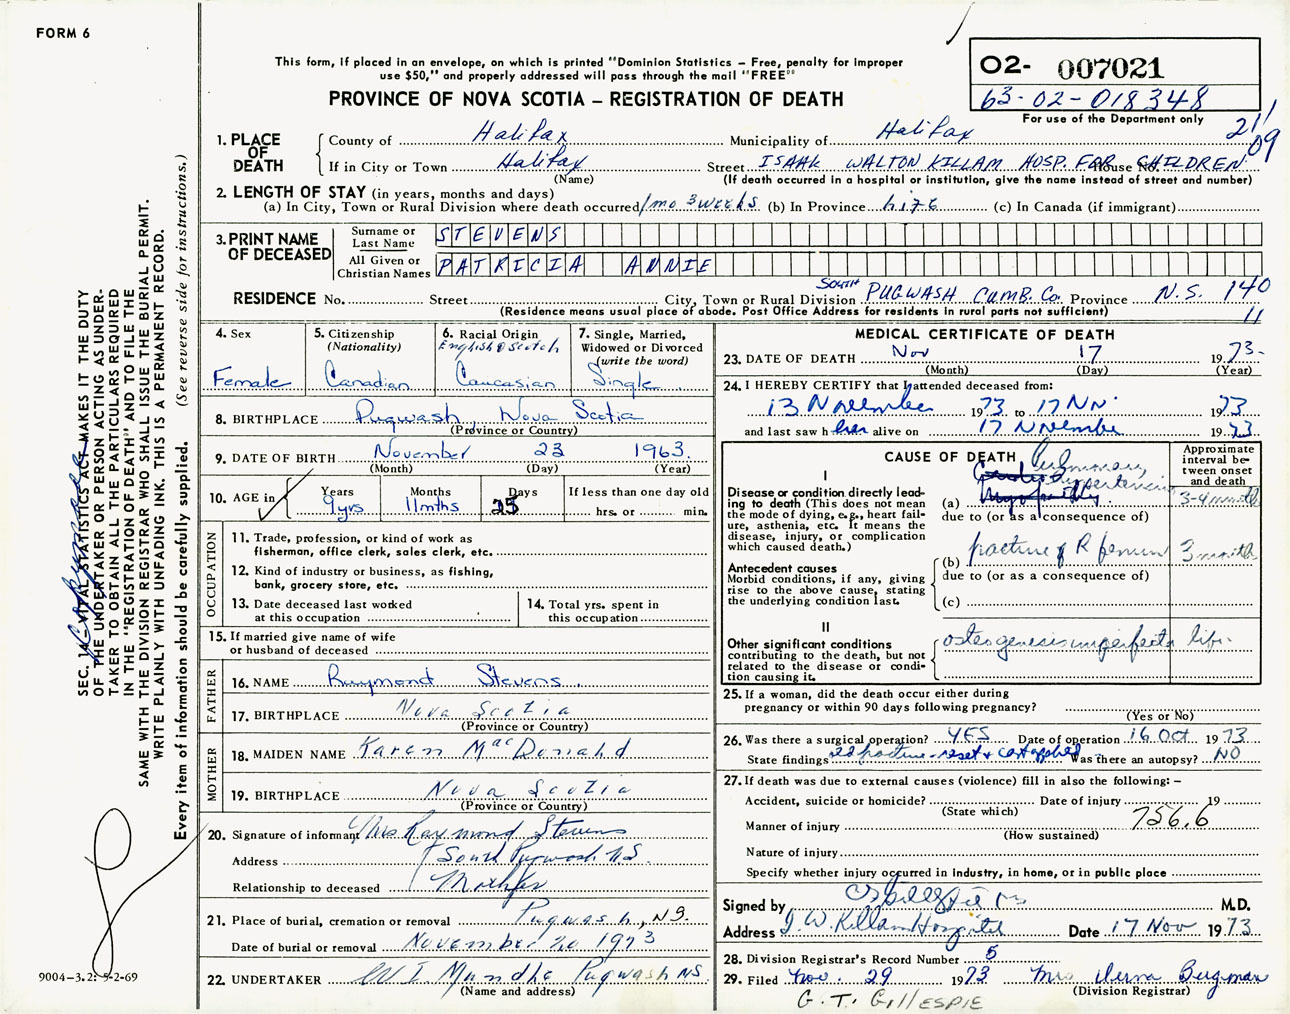 FORM 6
This form, if placed in an envelope, on which is printed "Dominion Statistics – Free, penalty for improper
use $50," and properly addressed will pass through the mail "FREE"
PROVINCE OF NOVA SCOTIA – REGISTRATION OF DEATH
02- 007021
63-02-018348
For use of the Department only
21/09
1. PLACE OF DEATH
County of Halifax Municipality of Halifax
If in City or Town Halifax Street ISAAK WALTON KILLAM HOSP. FOR CHILDREN House No.
(Name) (If death occurred in a hospital or institution, give the name instead of street and number)
2. LENGTH OF STAY (in years, months and days)
(a) In City, Town or Rural Division where death occurred 1 mo 3 weeks (b) In Province life (c) In Canada (if immigrant)
3. PRINT NAME OF DECEASED
Surname or Last Name STEVENS
All Given or Christian Names PATRICIA ANNIE
RESIDENCE No. Street City, Town or Rural Division South PUGWASH CUMB. Co. Province N.S. 140
(Residence means usual place of abode. Post Office Address for residents in rural parts not sufficient) 11
4. Sex
Female
5. Citizenship
(Nationality)
Canadian
6. Racial Origin
English & Scotch
Caucasian
7. Single, Married,
Widowed or Divorced
(write the word)
Single
8. BIRTHPLACE Pugwash Nova Scotia
(Province or Country)
9. DATE OF BIRTH November 23 1963
(Month) (Day) (Year)
10. AGE in
Years Months Days If less than one day old
9 yrs 11 mths 25 hrs. or min.
OCCUPATION
11. Trade, profession, or kind of work as
fisherman, office clerk, sales clerk, etc.
12. Kind of industry or business, as fishing,
bank, grocery store, etc.
13. Date deceased last worked
at this occupation
14. Total yrs. spent in
this occupation
15. If married give name of wife
or husband of deceased
FATHER
16. NAME Raymond Stevens
17. BIRTHPLACE Nova Scotia
(Province or Country)
MOTHER
18. MAIDEN NAME Karen MacDonald
19. BIRTHPLACE Nova Scotia
(Province or Country)
20. Signature of informant Mrs Raymond Stevens
Address South Pugwash N.S.
Relationship to deceased Mother
21. Place of burial, cremation or removal Pugwash, NS.
Date of burial or removal November 20 1973
22. UNDERTAKER Pugwash NS.
(Name and address)
MEDICAL CERTIFICATE OF DEATH
23. DATE OF DEATH Nov 17 1973
(Month) (Day) (Year)
24. I HEREBY CERTIFY that I attended deceased from:
13 November 1973 to 17 Nov 1973
and last saw her alive on 17 November 1973
CAUSE OF DEATH
Approximate
interval be-
tween onset
and death
I
Disease or condition directly lead-
ing to death (This does not
mean the mode of dying, e.g., heart fail-
ure, asthenia, etc. It means the
disease, injury, or complication
which caused death.)
(a) Pulmonary hypertension 3-4 months
due to (or as a consequence of)
Antecedent causes
Morbid conditions, if any, giving
rise to the above cause, stating
the underlying condition last.
(b) fracture of R femur 3 months
due to (or as a consequence of)
(c)
II
Other significant conditions
contributing to the death, but not
related to the disease or condi-
tion causing it.
osteogenesis imperfecta life
25. If a woman, did the death occur either during
pregnancy or within 90 days following pregnancy?
(Yes or No)
26. Was there a surgical operation? YES Date of operation 16 Oct 1973
State findings old fracture - reset & cast applied Was there an autopsy? NO
27. If death was due to external causes (violence) fill in also the following: –
Accident, suicide or homicide? Date of injury 19
(State which)
Manner of injury 756.6
(How sustained)
Nature of injury
Specify whether injury occurred in industry, in home, or in public place
Signed by M.D.
Address I.W. Killam Hospital Date 17 Nov 1973
28. Division Registrar's Record Number 5
29. Filed Nov. 29 1973 Mrs Bergman
(Division Registrar)
G. T. GILLESPIE
SEC. 14 VITAL STATISTICS ACT MAKES IT THE DUTY
OF THE UNDERTAKER OR PERSON ACTING AS UNDER-
TAKER TO OBTAIN ALL THE PARTICULARS REQUIRED
IN THE "REGISTRATION OF DEATH" AND TO FILE THE
SAME WITH THE DIVISION REGISTRAR WHO SHALL ISSUE THE BURIAL PERMIT.
WRITE PLAINLY WITH UNFADING INK. THIS IS A PERMANENT RECORD.
Every item of information should be carefully supplied. (See reverse side for instructions.)
9004-3.2: 5-2-69